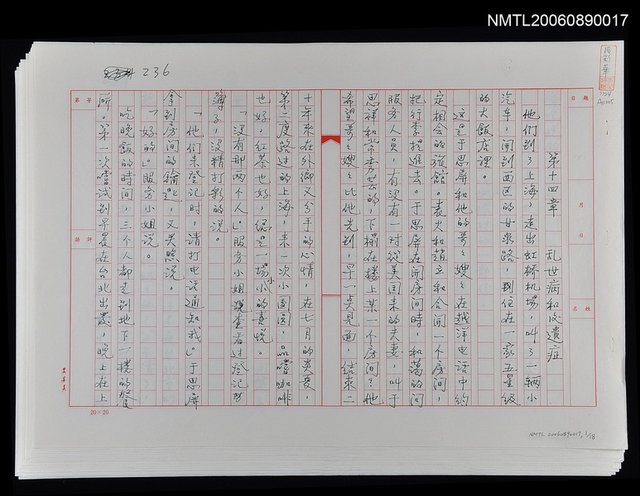 NMTL20060890017
236
第十四章 亂世病和後遺症
他們到了上海,走出虹橋機場,叫了一輛小
汽車,開到西區的甘泉路,住在一家五星級
的大飯店裡。
這是于思屏和他的哥哥嫂嫂在越洋電話中約
定相會的旅館。袁大和趙立和合開一個房間,
把行李提進去。于思屏在開房間時,和藹的問
服務人員,有沒有一對從美國來的夫妻,叫于
思祥和常,下榻在樓上某一個房間?他
希望哥哥嫂嫂比他先到,早一點見面,結束二
十年來在外鄉又分手的心情,在七月的炎夏,
第二度路過的上海,來一次小團圓,品嚐咖啡
也好,紅茶也好,保是一場小小的責晚。
「沒有那兩個人。」服務小姐查看過登記
簿子,沒精打彩的說。
「他們來登記時,請打電話通知我。」于思屏
拿到房間的鑰匙,又關照說。
「好的。」服務小姐說。
吃晚飯的時間,三個人都走到地下一樓的餐
所。第一次嚐試到早晨在台北出發,晚上在上
20×20
NMTL20060890017,1/18